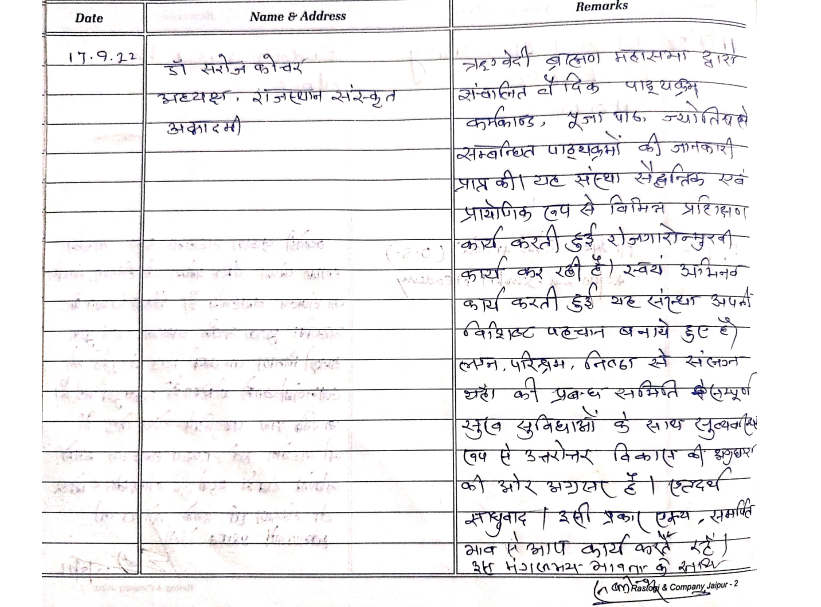 Date Name & Address Remarks
17.9.22
डॉ सरोज कोचर
अध्यक्ष, राजस्थान संस्कृत
अकादमी
ऋग्वेदी ब्राह्मण महासभा द्वारा
संचालित वैदिक पाठ्यक्रम
कर्मकाण्ड, पूजा पाठ, ज्योतिष से
सम्बन्धित पाठ्यक्रमों की जानकारी
प्राप्त की। यह संस्था सैद्धान्तिक एवं
प्रायोगिक रूप से विभिन्न प्रशिक्षण
कार्य करती हुई रोजगारोन्मुखी
कार्य कर रही है। स्वयं अभिनव
कार्य करती हुई यह संस्था अपनी
विशिष्ट पहचान बनाये हुए है।
लग्न, परिश्रम, निष्ठा से संलग्न
यहाँ की प्रबन्ध समिति सम्पूर्ण
सुख सुविधाओं के साथ
रूप से उत्तरोत्तर विकास की
की ओर अग्रसर है। एतदर्थ
साधुवाद। इसी प्रकार समर्पित
भाव से आप कार्य करते रहें।
इस मंगलमय भावना के साथ
Rastogi & Company Jaipur - 2